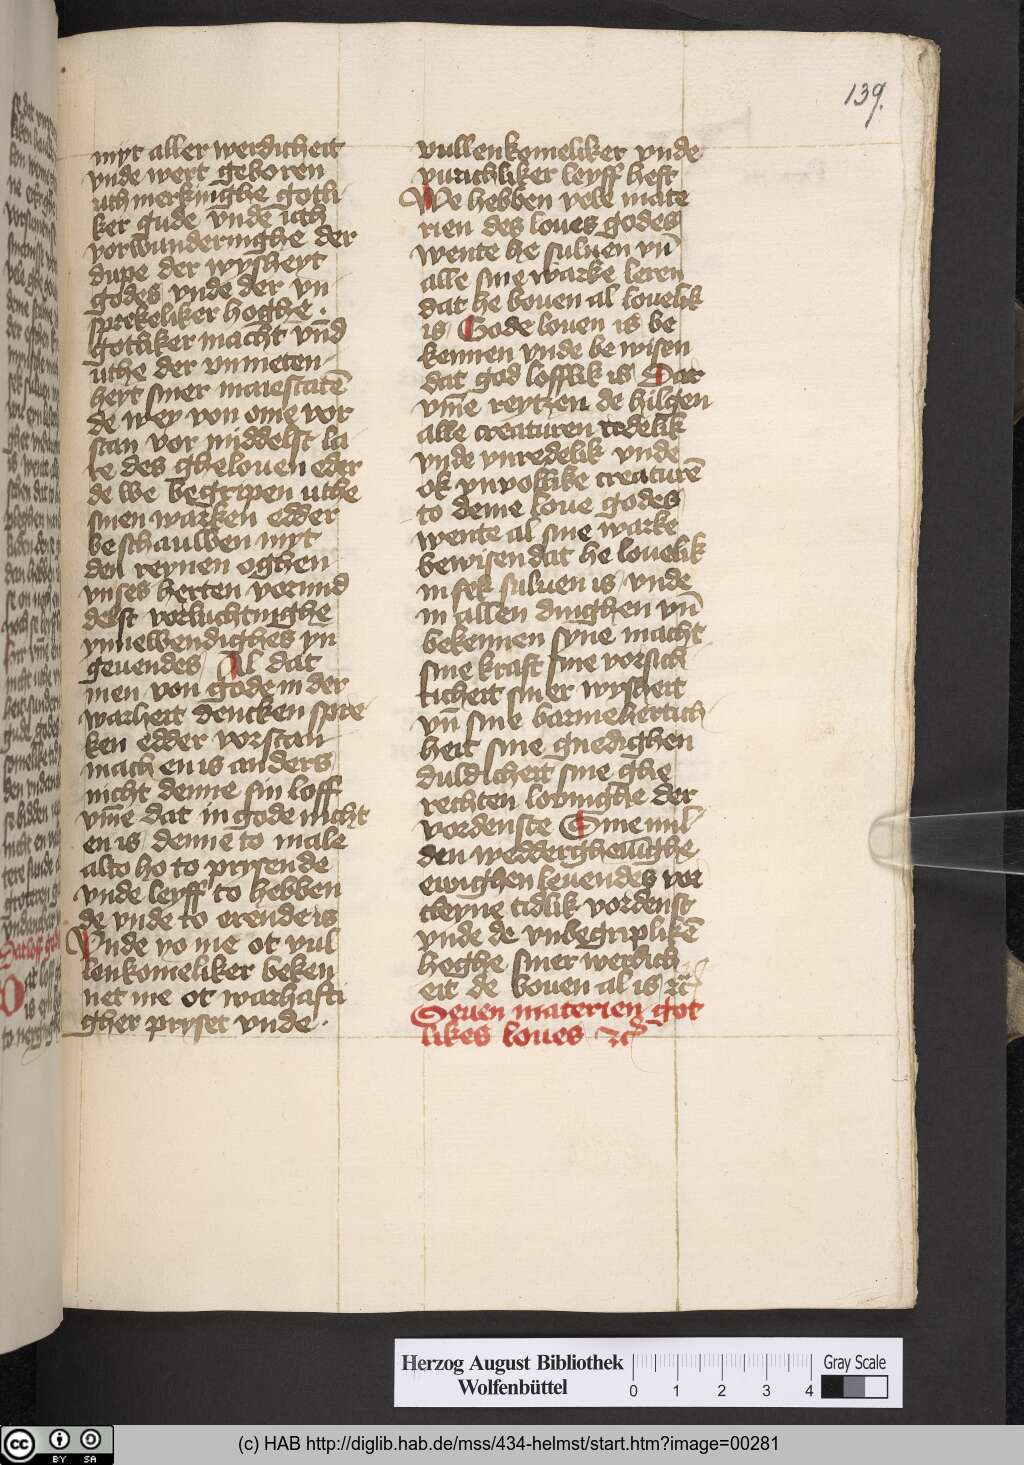 139.
myt aller werdicheit
vnde wert geboren
uth merkinghe gotli
ker gude vnde uth
vorwunderinghe der
dupe der wysheyt
godes vnde der vn
sprekeliker hoghe .
gotliker macht vnd
uthe der vnmeten
heyt siner maiestatē
de wey von ome vor
stan vor middelst la
re des ghelouen eder
de we begripen uthe
sinen warken edder
beschauwen myt
den reynen oghen
vnses herten vormid
delst vorluchtinghe
ynnewendighes yn
geuendes Al dat
men von gode in der
warheit dencken spre
ken edder vorstan
mach en is anders
nicht denne sin loff
vm̄e dat in gode nicht
en is denne to male
alto ho to prysende
vnde leyff to hebben
de vnde to erende is
Vnde yo me ot vul
lenkomeliker beken
net me ot warhafti
gher pryset vnde .
vullenkomeliker vnde
vurichliker leyff heft
We hebben vele mate
rien des loues godes
wente he suluen vn̄
alle sine warke leren
dat he bouen al louelik
is Gode louen is be
kennen vnde be wisen
dat god lofflik is Dar
vm̄e reytzen de hilgen
alle creaturen redelik
vnde vnredelik vnde
ok vnvoilike creaturē
to deme loue godes
wente al sine warke
bewisen dat he louelik
in sek suluen is vnde
in allen dinghen vn̄
bekennen syne macht
sine kraft sine vorsich
ticheit siner wyscheit
vn̄ sine barmehertich
heit sine gnedighen
duldicheit sine ghe
rechten loninghe der
vordenste Sine mil
den weddergheuinghe
ewighen leuendes vor
cleyne tidlik vordenst
vnde de vnbegriplikē
hoghe siner werdich
eit de bouen al is ꝛc̄
Seuen materien got
likes loues ꝛc̄
Herzog August Bibliothek
Wolfenbüttel
0 1 2 3 4
Gray Scale
BY SA
(c) HAB http://diglib.hab.de/mss/434-helmst/start.htm?image=00281